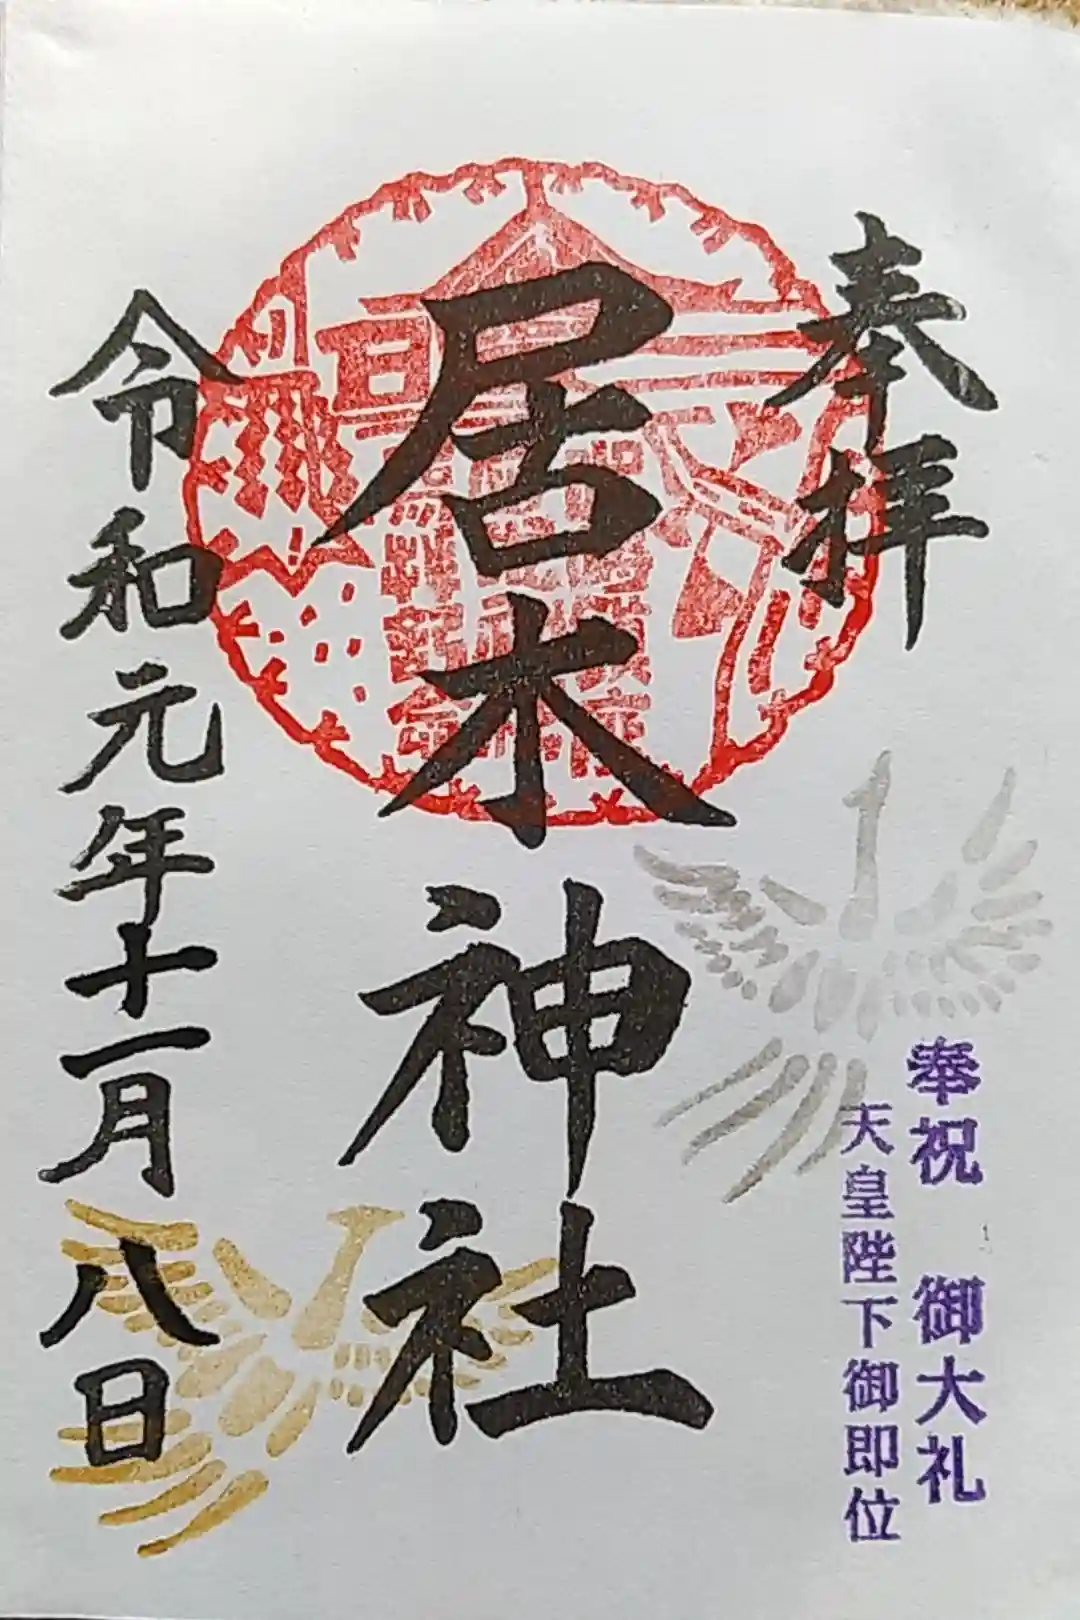 奉拝
奉祝 御大礼
天皇陛下御即位
居木神社
令和元年十一月八日